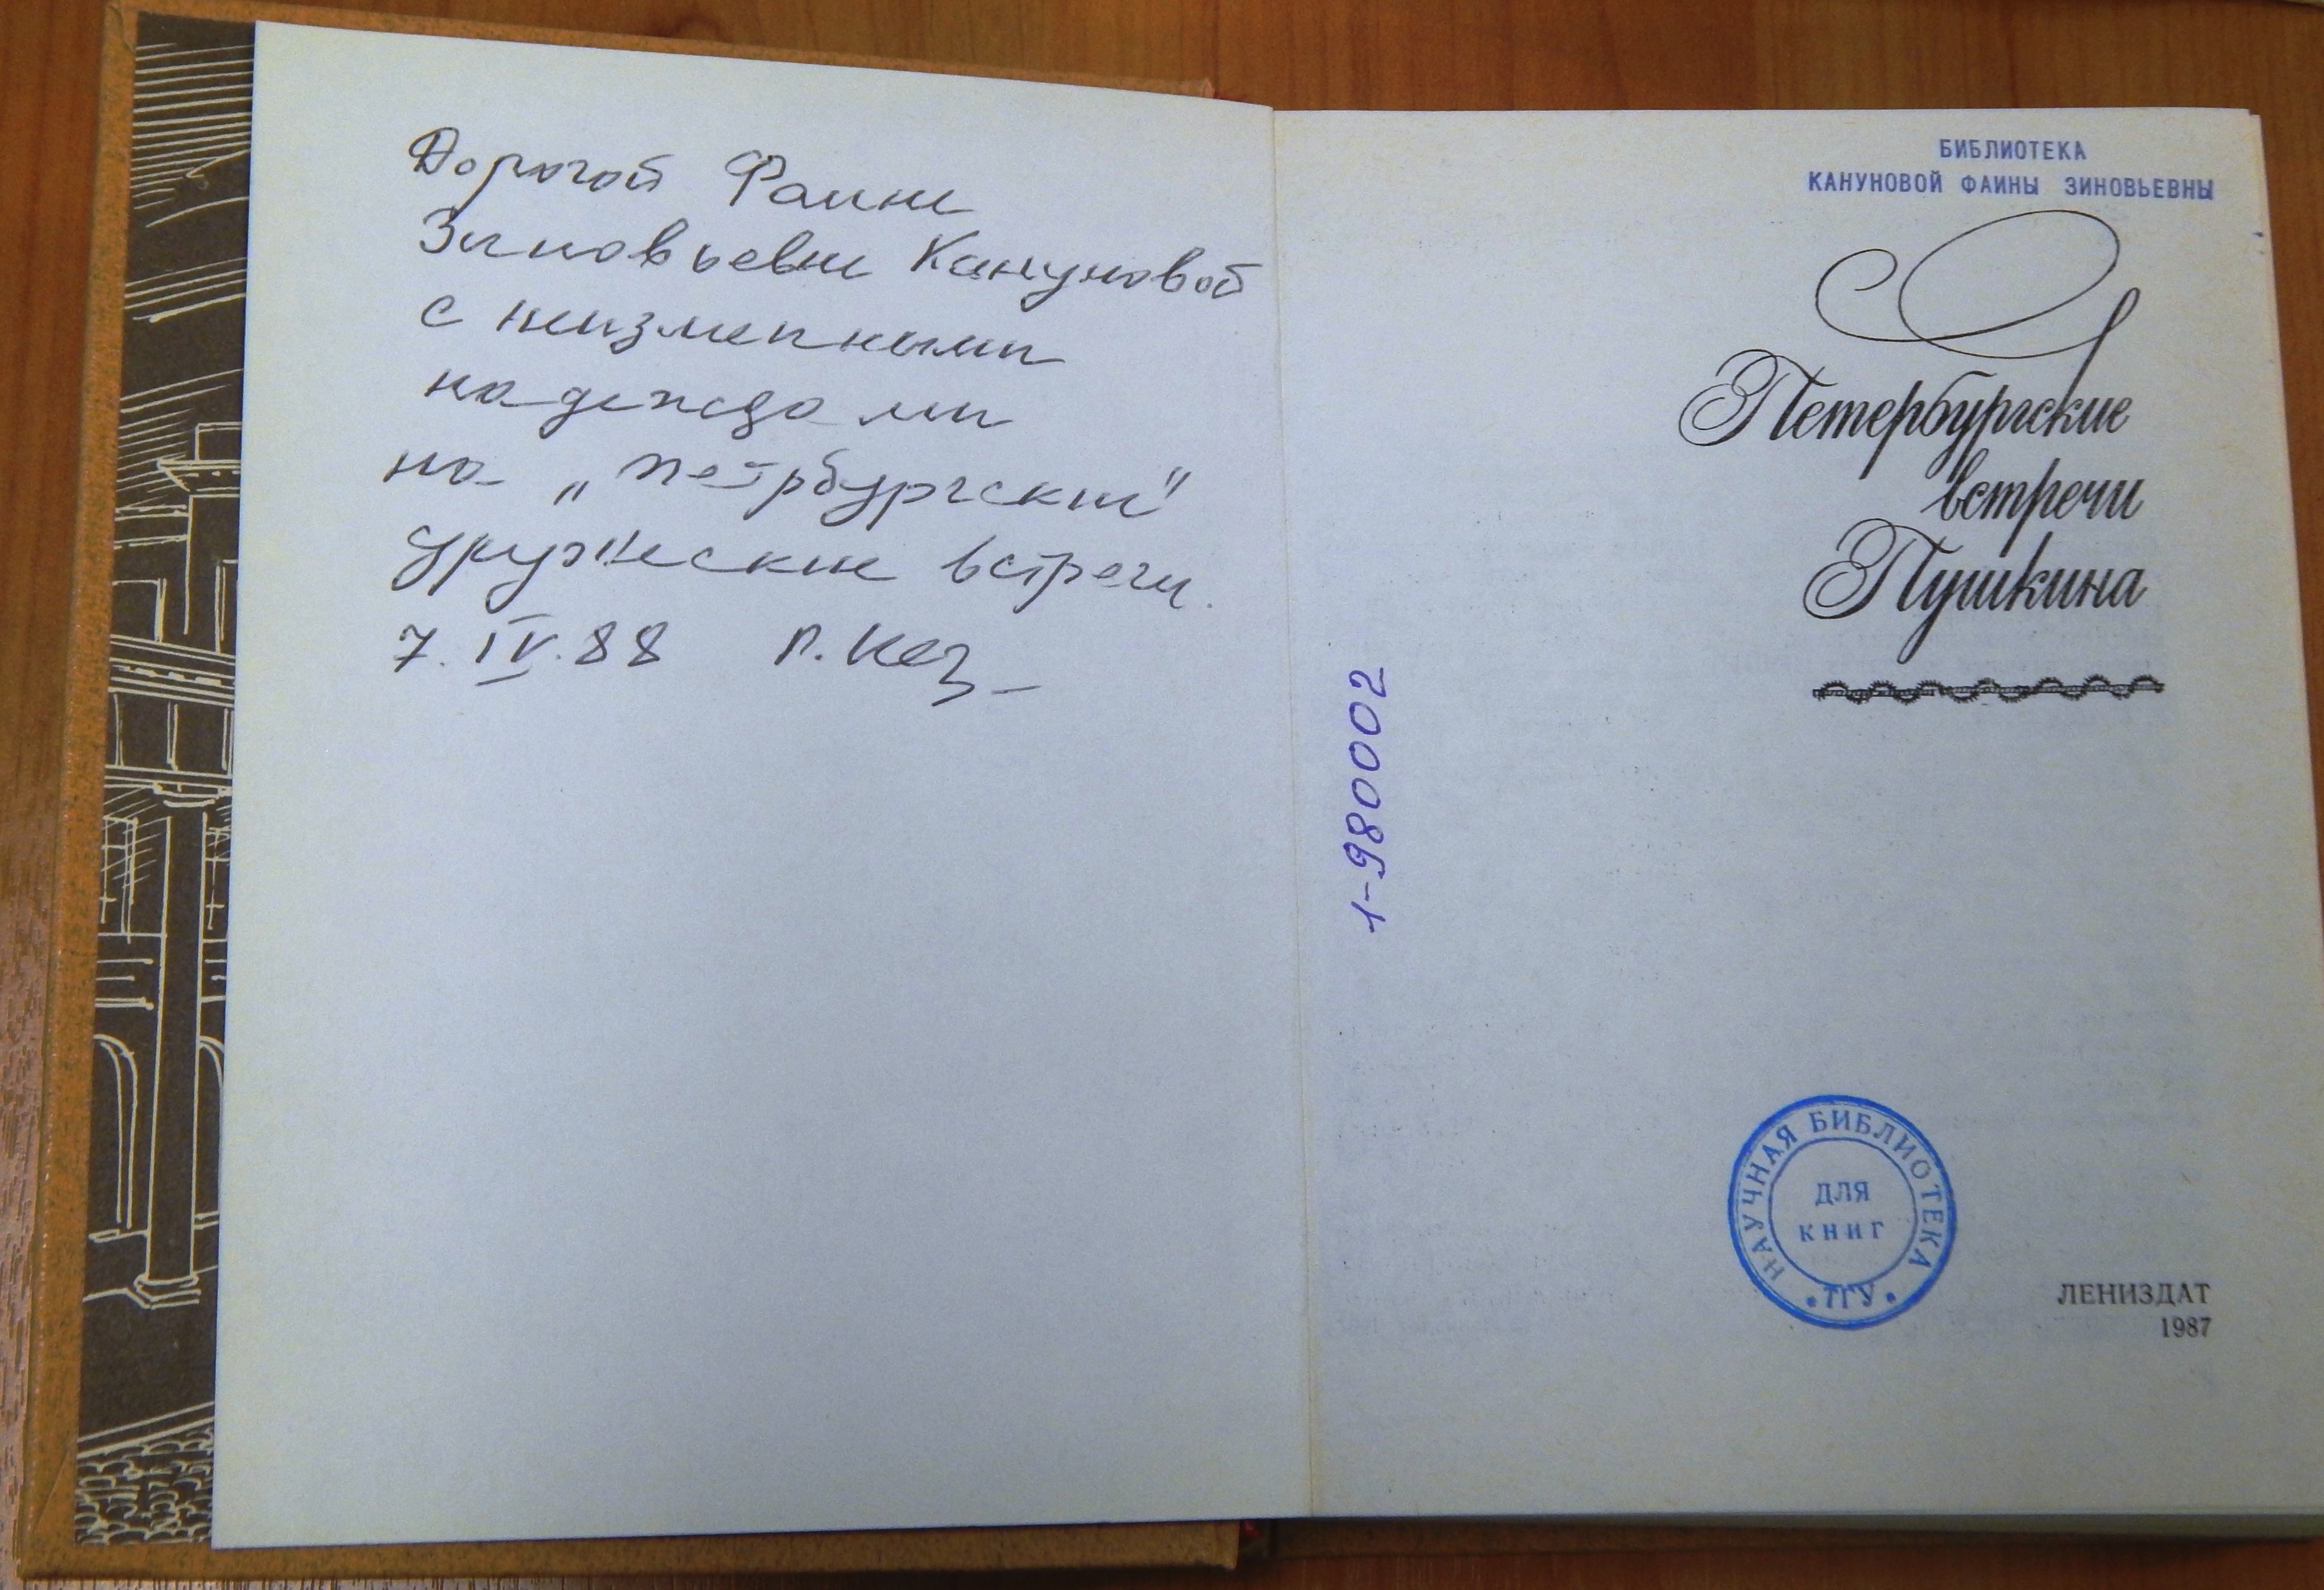 Дорогой Фаине
Зиновьевне Кануновой
с неизменными
надеждами
на „петрбургские"
дружеские встречи.
7.IV.88
БИБЛИОТЕКА
КАНУНОВОЙ ФАИНЫ ЗИНОВЬЕВНЫ
Петербургские
встречи
Пушкина
1-980002
НАУЧНАЯ БИБЛИОТЕКА
ДЛЯ
КНИГ
* ТГУ *
ЛЕНИЗДАТ
1987